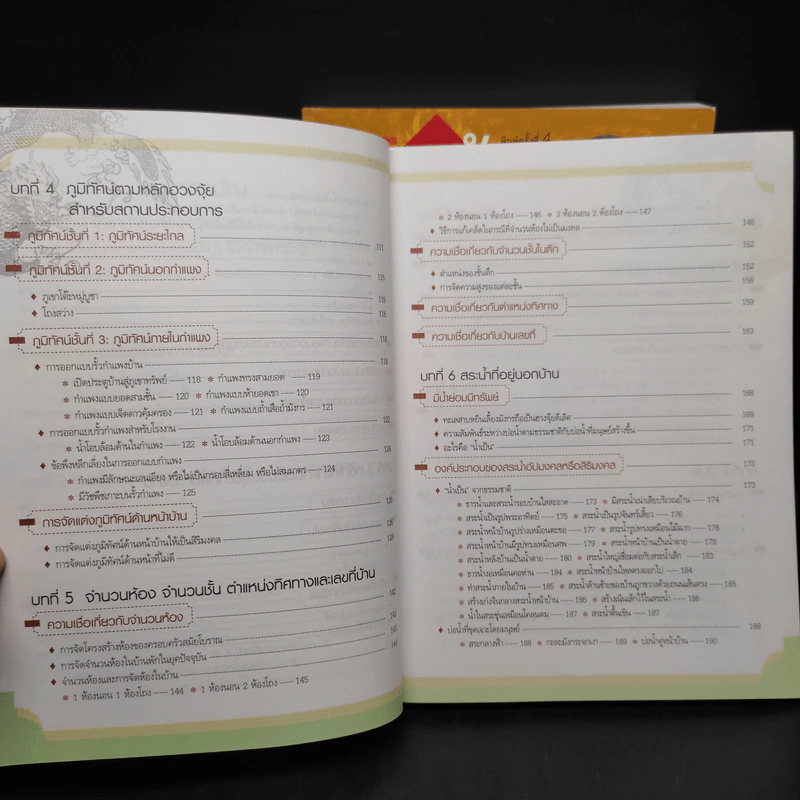 พิมพ์ครั้งที่ 4
บทที่ 4 ภูมิทัศน์ตามหลักฮวงจุ้ย
สำหรับสถานประกอบการ
ภูมิทัศน์ชั้นที่ 1: ภูมิทัศน์ระยะไกล 111
ภูมิทัศน์ชั้นที่ 2: ภูมิทัศน์นอกกำแพง 115
♦ ภูเขาโต๊ะหมู่บูชา 115
♦ โถงสว่าง 116
ภูมิทัศน์ชั้นที่ 3: ภูมิทัศน์ภายในกำแพง 118
♦ การออกแบบรั้วกำแพงบ้าน 118
* เปิดประตูบ้านสู่ภูเขาทรัพย์ ---- 118 * กำแพงทรงสามยอด ---- 119
* กำแพงแบบยอดสามชั้น ---- 120 * กำแพงแบบห้ายอดเขา ---- 120
* กำแพงแบบเจ็ดดาวคุ้มครอง ---- 121 * กำแพงแบบถ้ำเสือถ้ำมังกร ---- 121
♦ การออกแบบรั้วกำแพงสำหรับโรงงาน
* น้ำโอบล้อมด้านในกำแพง ---- 122 * น้ำโอบล้อมด้านนอกกำแพง ---- 123
♦ ข้อพึงหลีกเลี่ยงในการออกแบบกำแพง
* กำแพงมีลักษณะเอนเอียง หรือไม่เป็นกรอบสี่เหลี่ยม หรือไม่สมมาตร ---- 124
* มีวัชพืชเกาะบนรั้วกำแพง ---- 125
การจัดแต่งภูมิทัศน์ด้านหน้าบ้าน
♦ การจัดแต่งภูมิทัศน์ด้านหน้าบ้านให้เป็นสิริมงคล
♦ การจัดแต่งภูมิทัศน์ด้านหน้าที่ไม่ดี
บทที่ 5 จำนวนห้อง จำนวนชั้น ตำแหน่งทิศทางและเลขที่บ้าน
ความเชื่อเกี่ยวกับจำนวนห้อง
♦ การจัดโครงสร้างห้องของครอบครัวสมัยโบราณ
♦ การจัดจำนวนห้องในบ้านพักในยุคปัจจุบัน
♦ จำนวนห้องและการจัดห้องในบ้าน
* 1 ห้องนอน 1 ห้องโถง ---- 144 * 1 ห้องนอน 2 ห้องโถง ---- 145
* 2 ห้องนอน 1 ห้องโถง ---- 146 * 3 ห้องนอน 2 ห้องโถง ---- 147
♦ วิธีการแก้เคล็ดในกรณีที่จำนวนห้องไม่เป็นมงคล 148
ความเชื่อเกี่ยวกับจำนวนชั้นในตึก 152
♦ ตำแหน่งของชั้นตึก 152
♦ การจัดความสูงของแต่ละชั้น 156
ความเชื่อเกี่ยวกับตำแหน่งทิศทาง 159
ความเชื่อเกี่ยวกับบ้านเลขที่ 163
บทที่ 6 สระน้ำที่อยู่นอกบ้าน
มีน้ำย่อมมีทรัพย์ 168
♦ ทะเลสาบหยินเลี้ยงมังกรถือเป็นฮวงจุ้ยดีเลิศ 169
♦ ความสัมพันธ์ระหว่างบ่อน้ำตามธรรมชาติกับบ่อน้ำที่มนุษย์สร้างขึ้น 171
♦ อะไรคือ "น้ำเป็น" 171
องค์ประกอบของสระน้ำอัปมงคลหรือสิริมงคล 173
♦ "น้ำเป็น" จากธรรมชาติ 173
* ธารน้ำและสระน้ำรอบบ้านใสสะอาด ---- 173 * มีสระน้ำเน่าเสียบริเวณบ้าน ---- 174
* สระน้ำเป็นรูปพระอาทิตย์ ---- 175 * สระน้ำเป็นรูปจันทร์เสี้ยว ---- 175
* สระน้ำหน้าบ้านรูปร่างเหมือนตะขอ ---- 176 * สระน้ำรูปทรงเหมือนไม้ฉาก ---- 177
* สระน้ำหน้าบ้านมีรูปทรงเหมือนศพ ---- 179 * สระน้ำหน้าบ้านเป็นน้ำตาย ---- 179
* สระน้ำหลังบ้านเป็นน้ำตาย ---- 180 * สระน้ำใหญ่เชื่อมต่อกับสระน้ำเล็ก ---- 183
* ธารน้ำงอเหมือนคอห่าน ---- 184 * สระน้ำหน้าบ้านไหลตรงออกไป ---- 184
* ทำสระน้ำภายในบ้าน ---- 185 * สระน้ำด้านซ้ายของบ้านถูกขวางด้วยถนนเส้นตรง ---- 185
* สร้างเก๋งจีนกลางสระน้ำหน้าบ้าน ---- 186 * สร้างเนินเล็กไว้ในสระน้ำ ---- 186
* น้ำในสระขุ่นเหมือนโคลนตม ---- 187 * สระน้ำตื้นเขิน ---- 187
♦ บ่อน้ำที่ขุดเจาะโดยมนุษย์ 188
* สระกลางฟ้า ---- 188 * ทะเลมังกรจกเภา ---- 189 * บ่อน้ำคู่หน้าบ้าน ---- 190